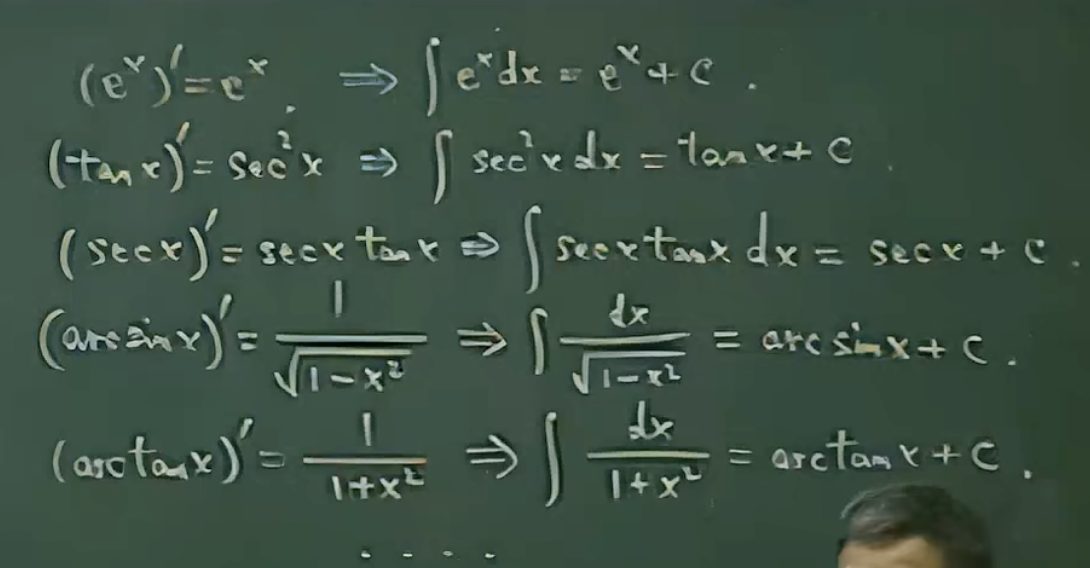 (eˣ)' = eˣ. ⇒ ∫ eˣ dx = eˣ + c.
(tan x)' = sec²x ⇒ ∫ sec²x dx = tan x + c.
(sec x)' = sec x tan x ⇒ ∫ sec x tan x dx = sec x + c.
(arcsin x)' = 1/√(1-x²) ⇒ ∫ dx/√(1-x²) = arcsin x + c.
(arctan x)' = 1/(1+x²) ⇒ ∫ dx/(1+x²) = arctan x + c.
....